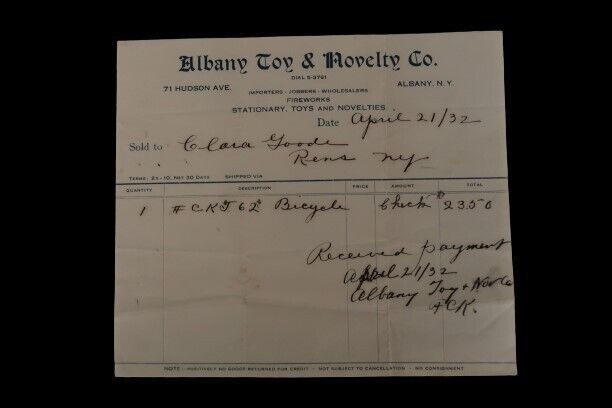 Albany Toy & Novelty Co.
DIAL 5-3761
71 HUDSON AVE. ALBANY, N.Y.
IMPORTERS - JOBBERS - WHOLESALERS
FIREWORKS
STATIONARY, TOYS AND NOVELTIES
Date April 21/32
Sold to Clara Goode
Rens NY
TERMS: 2%-10, NET 30 DAYS SHIPPED VIA
QUANTITY DESCRIPTION PRICE AMOUNT TOTAL
1 Bicycle Check $23.50
Received payment
April 21/32
Albany Toy + Nov Co
NOTE - POSITIVELY NO GOODS RETURNED FOR CREDIT - NOT SUBJECT TO CANCELLATION - NO CONSIGNMENT